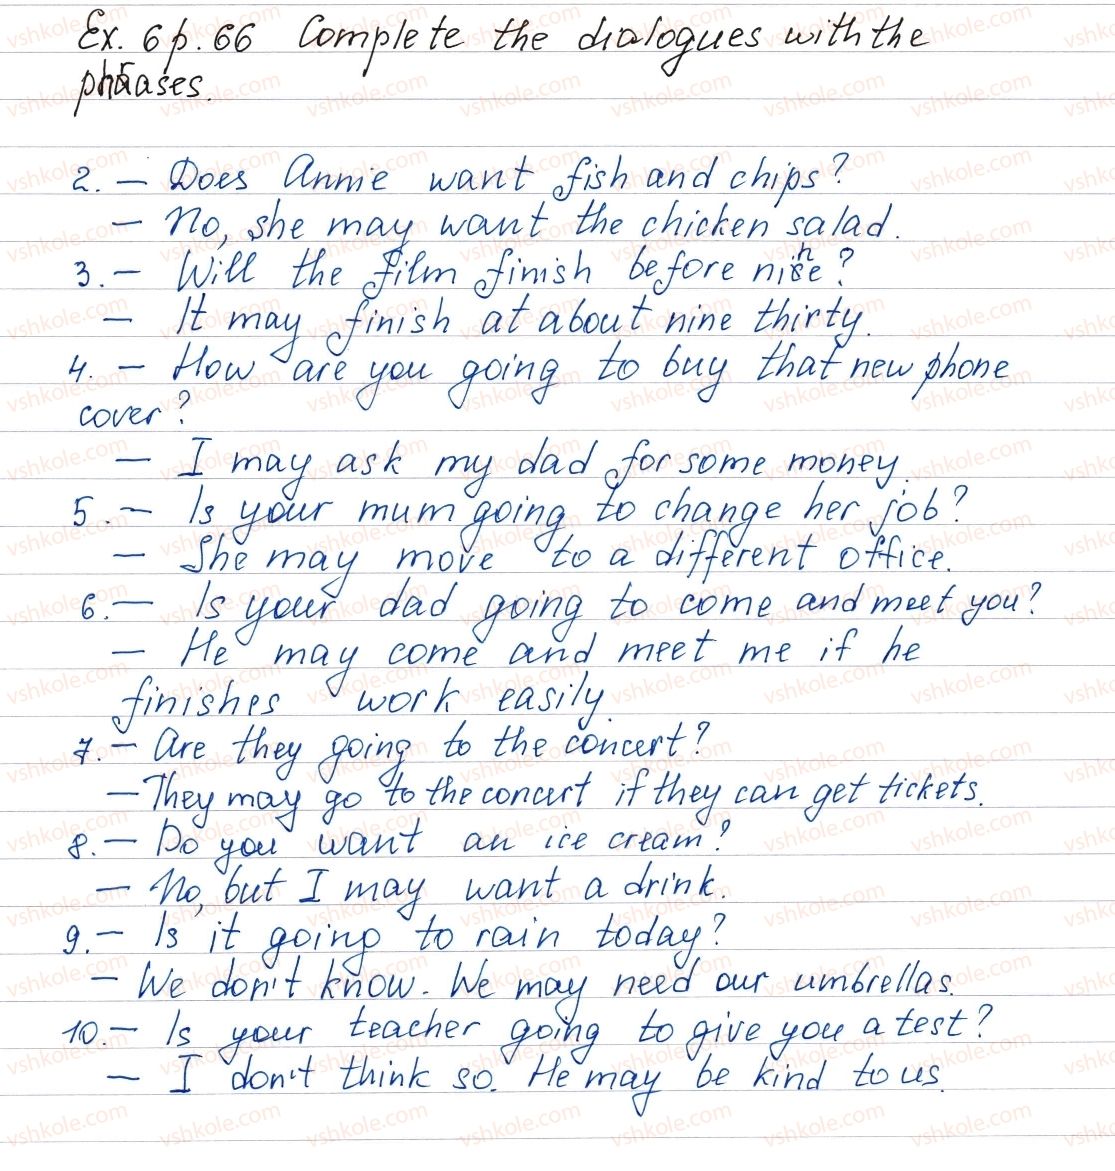 Ex. 6 p. 66 Complete the dialogues with the
phrases.
2. – Does Annie want fish and chips?
– No, she may want the chicken salad.
3. – Will the film finish before nine?
– It may finish at about nine thirty.
4. – How are you going to buy that new phone
cover?
– I may ask my dad for some money.
5. – Is your mum going to change her job?
– She may move to a different office.
6. – Is your dad going to come and meet you?
– He may come and meet me if he
finishes work easily.
7. – Are they going to the concert?
– They may go to the concert if they can get tickets.
8. – Do you want an ice cream?
– No, but I may want a drink.
9. – Is it going to rain today?
– We don't know. We may need our umbrellas.
10. – Is your teacher going to give you a test?
– I don't think so. He may be kind to us.
vshkole.com